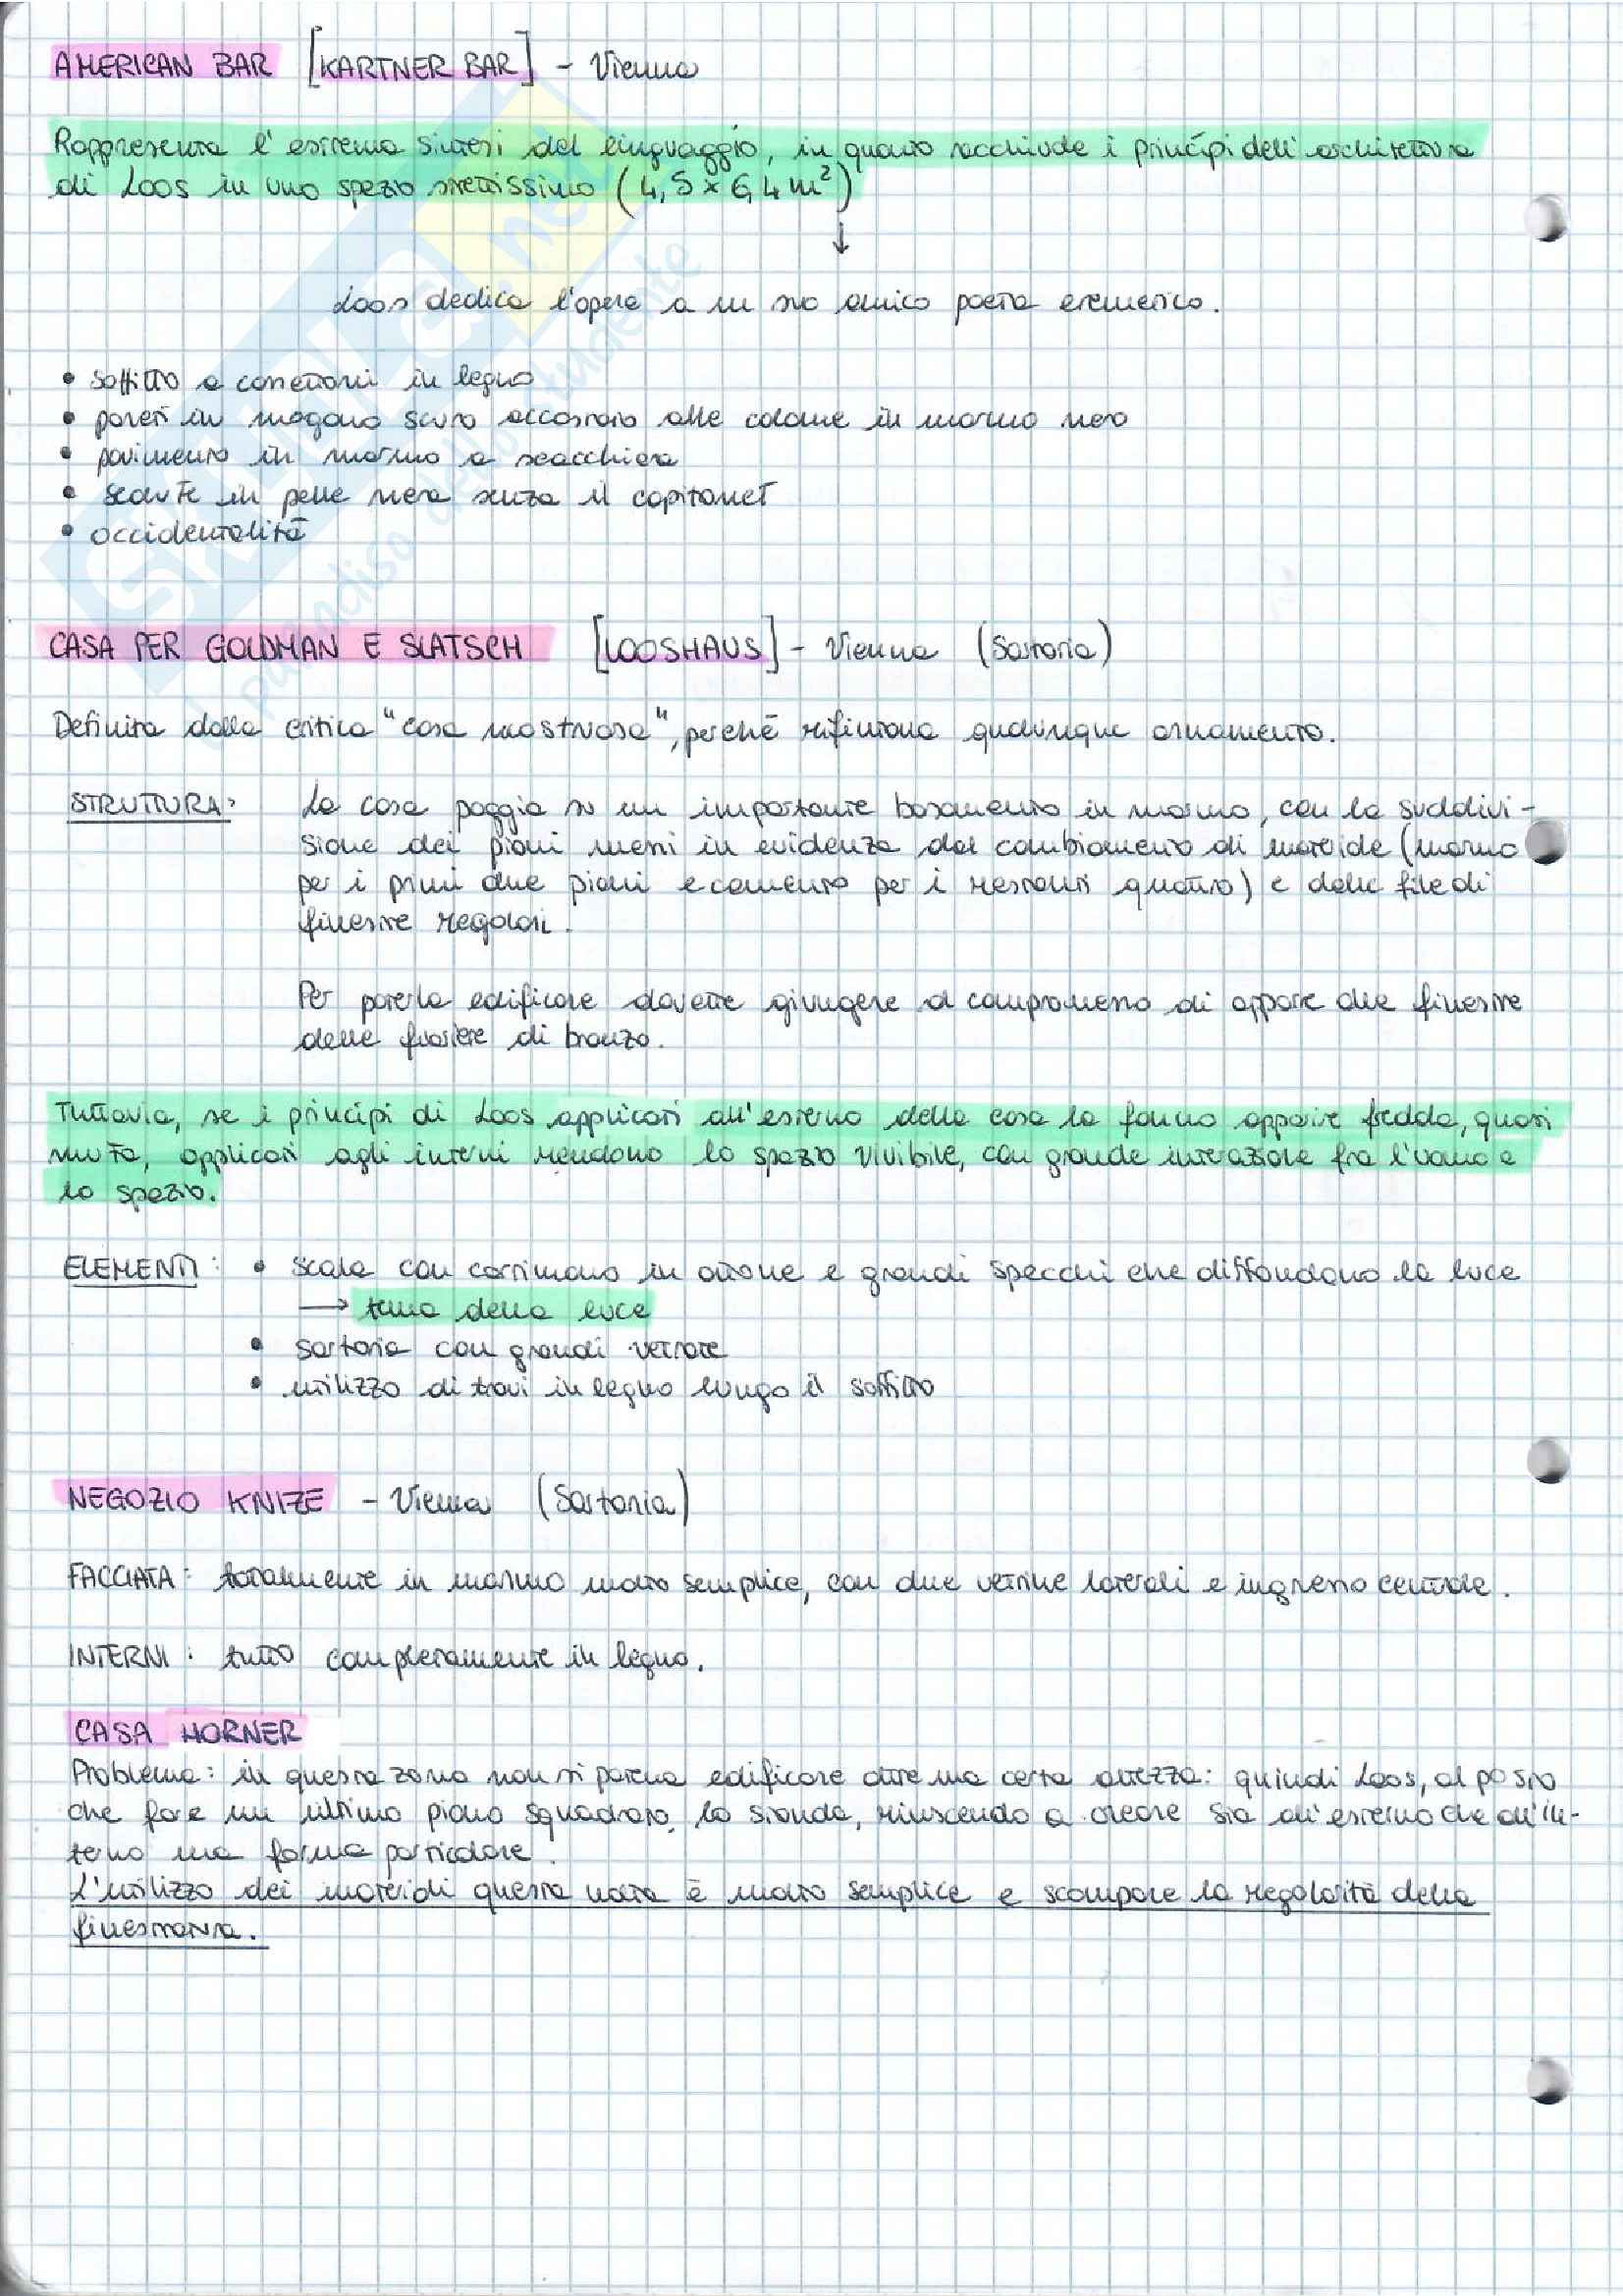 AMERICAN BAR [KARTNER BAR] - Vienna
Rappresenta l'estrema sintesi del linguaggio, in quanto racchiude i princípi dell'architettura
di Loos in uno spazio strettissimo (4,5 x 6,4 m²)
↓
Loos dedica l'opera a un suo amico poeta ermetico.
• soffitto a cassettoni in legno
• pareti in mogano scuro accostato alle colonne in marmo nero
• pavimento in marmo a scacchiera
• sedute in pelle nera senza il capitonet
• occidentalità
CASA PER GOLDMAN E SLATSCH [LOOSHAUS] - Vienna (Sartoria)
Definita dalla critica "casa mostruosa", perché rifiutava qualunque ornamento.
STRUTTURA: La casa poggia su un importante basamento in marmo, con la suddivi-
sione dei piani messi in evidenza dal cambiamento di materiale (marmo
per i primi due piani e cemento per i restanti quattro) e dalle file di
finestre regolari.
Per poterla edificare dovette giungere al compromesso di apporre alle finestre
delle fioriere di bronzo.
Tuttavia, se i princìpi di Loos applicati all'esterno della casa la fanno apparire fredda, quasi
muta, applicati agli interni rendono lo spazio vivibile, con grande interazione fra l'uomo e
lo spazio.
ELEMENTI: • scala con corrimano in ottone e grandi specchi che diffondono la luce
→ tema della luce
• sartoria con grandi vetrate
• utilizzo di travi in legno lungo il soffitto
NEGOZIO KNIZE - Vienna (Sartoria)
FACCIATA: totalmente in marmo molto semplice, con due vetrine laterali e ingresso centrale.
INTERNI: tutto completamente in legno.
CASA HORNER
Problema: in questa zona non si poteva edificare oltre una certa altezza: quindi Loos, al posto
che fare un ultimo piano squadrato, lo stonda, riuscendo a creare sia all'esterno che all'in-
terno una forma particolare.
L'utilizzo dei materiali questa volta è molto semplice e scompare la regolarità della
finestratura.
SKUOLA.net
il paradiso dello studente